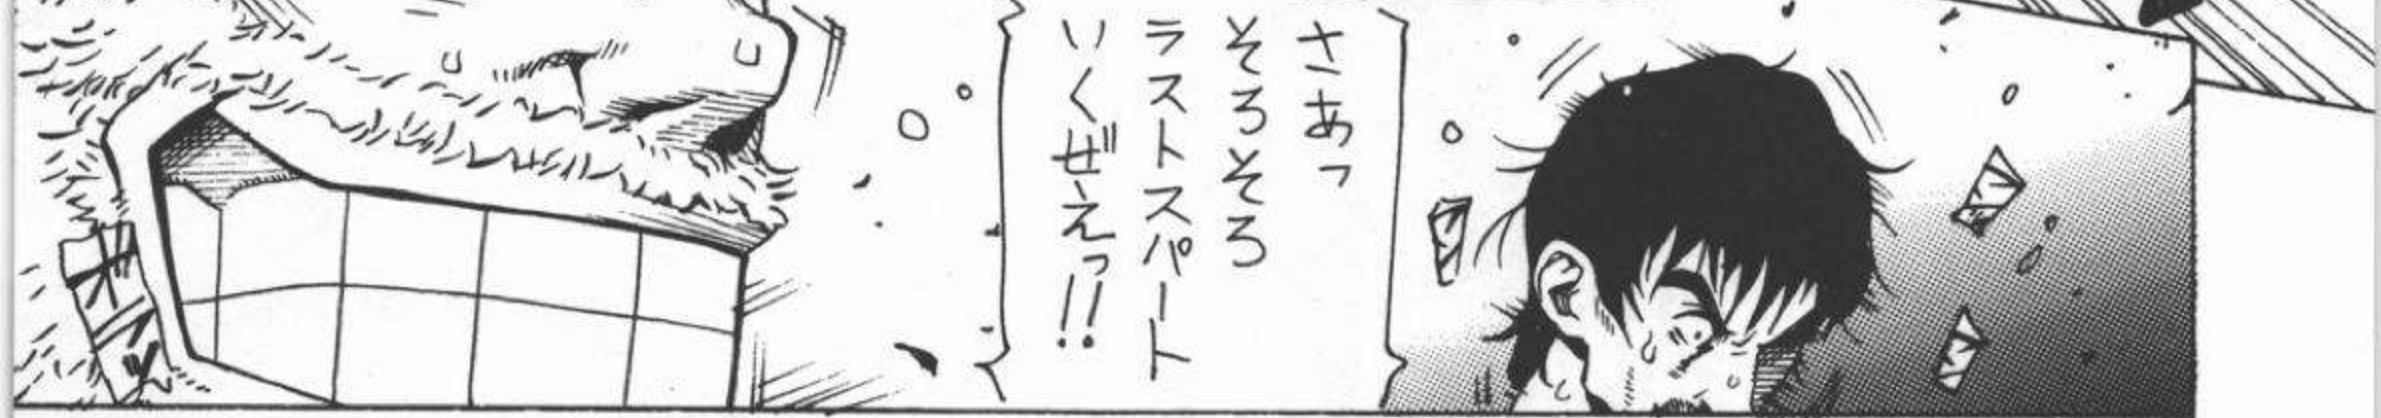 さあっ
そろそろ
ラストスパート
いくぜえっ!!